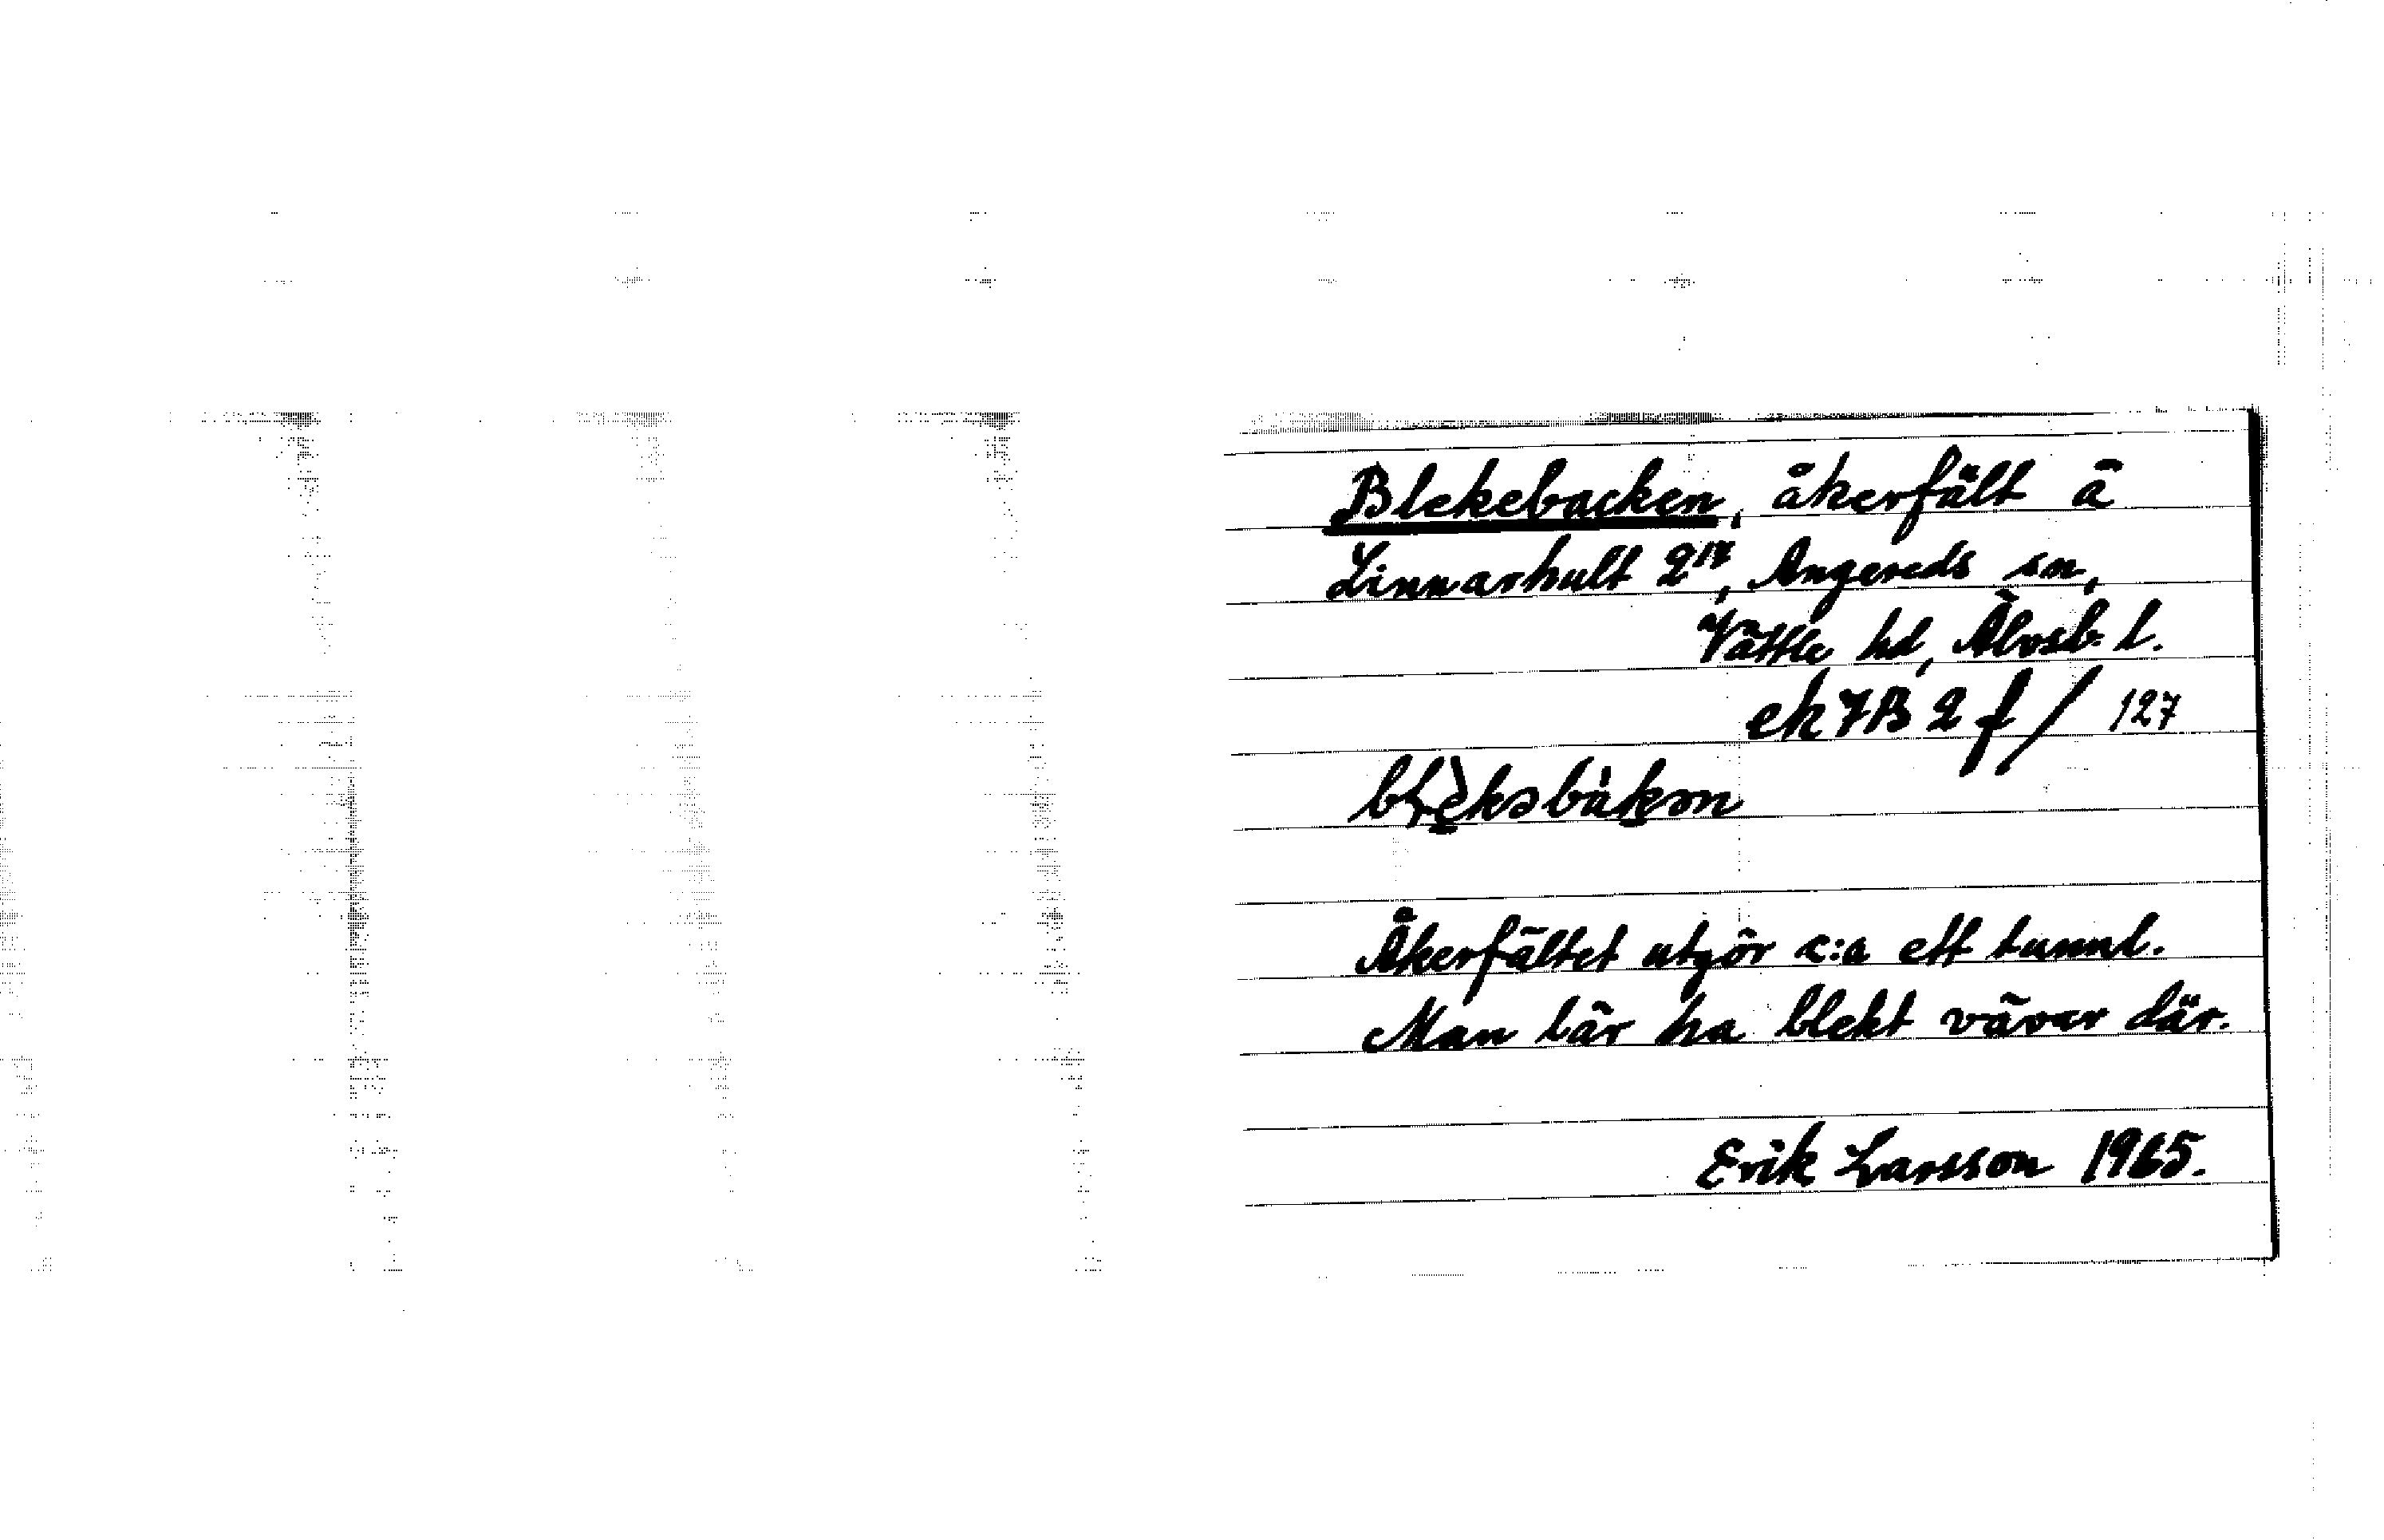 Blekebacken, åkerfält å
Linnarhult 2¹⁷, Angereds sn,
Vättle hd, Älvsb. l.
ek 7B 2 f / 127
Åkerfältet utgör c:a ett tunnl.
Man lär ha blekt vävar där.
Erik Larsson 1965.